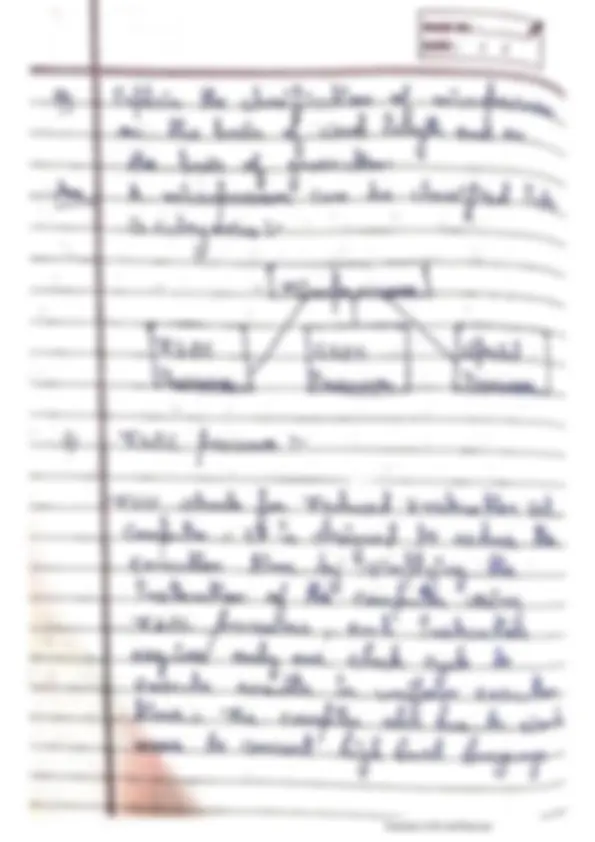 the classification of microprocessor
on the basis of word length and on
the basis of
Ans A microprocessor can be classified into
3 categories :-
RISC
Processor
CISC
Processor
Special
Processor
RISC Processor :-
RISC stands for Reduced Instruction set
Computer. It is designed to reduce the
execution time by simplifying the
instruction of the computer using
RISC processors, each instruction
requires only one clock cycle to
execute results in uniform execution
time. the compiler also has to work
more to convert high level language